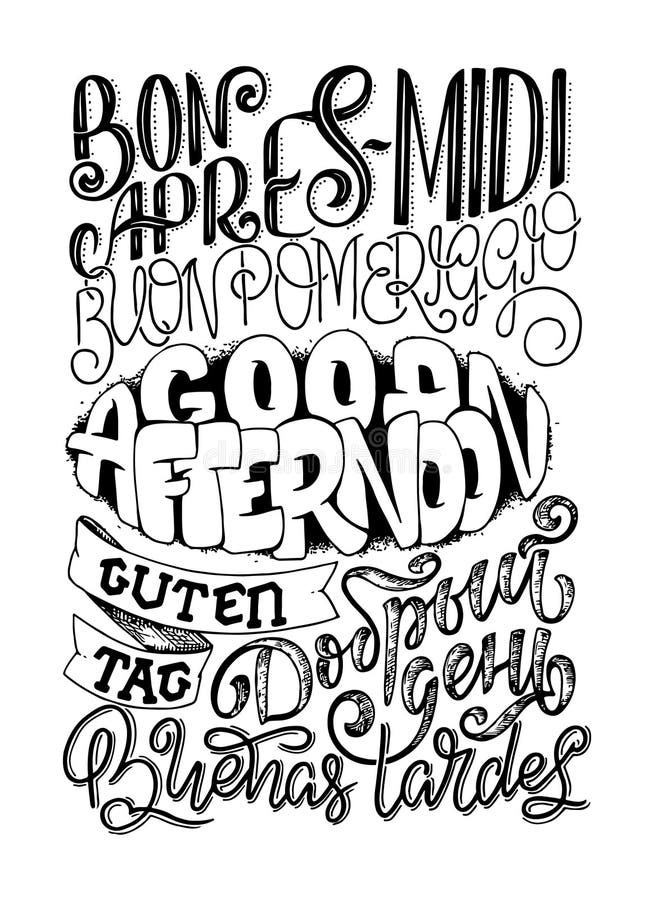 BON
APRES-MIDI
BUON POMERIGGIO
GOOD
AFTERNOON
GUTEN
TAG
Добрый
день
Buenas tardes
dreamstime.com